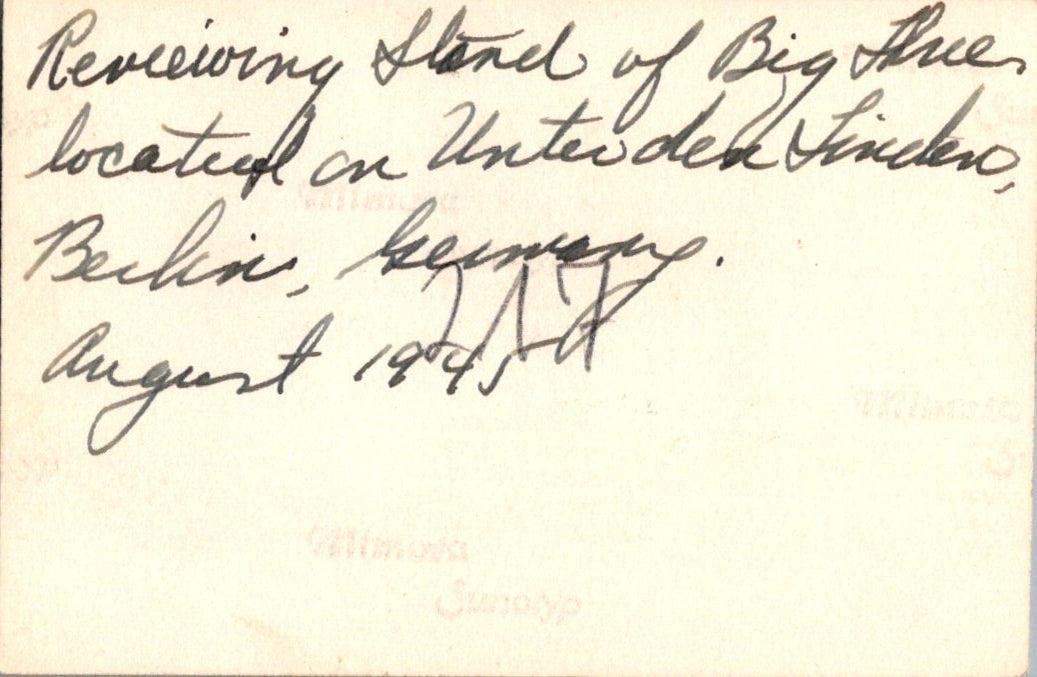 Reveiwing Stand of Big Three
located on Unter den Linden,
Berlin, Germany.
August 1945
Mimosa
Mimosa
Mimosa
Sunotyp